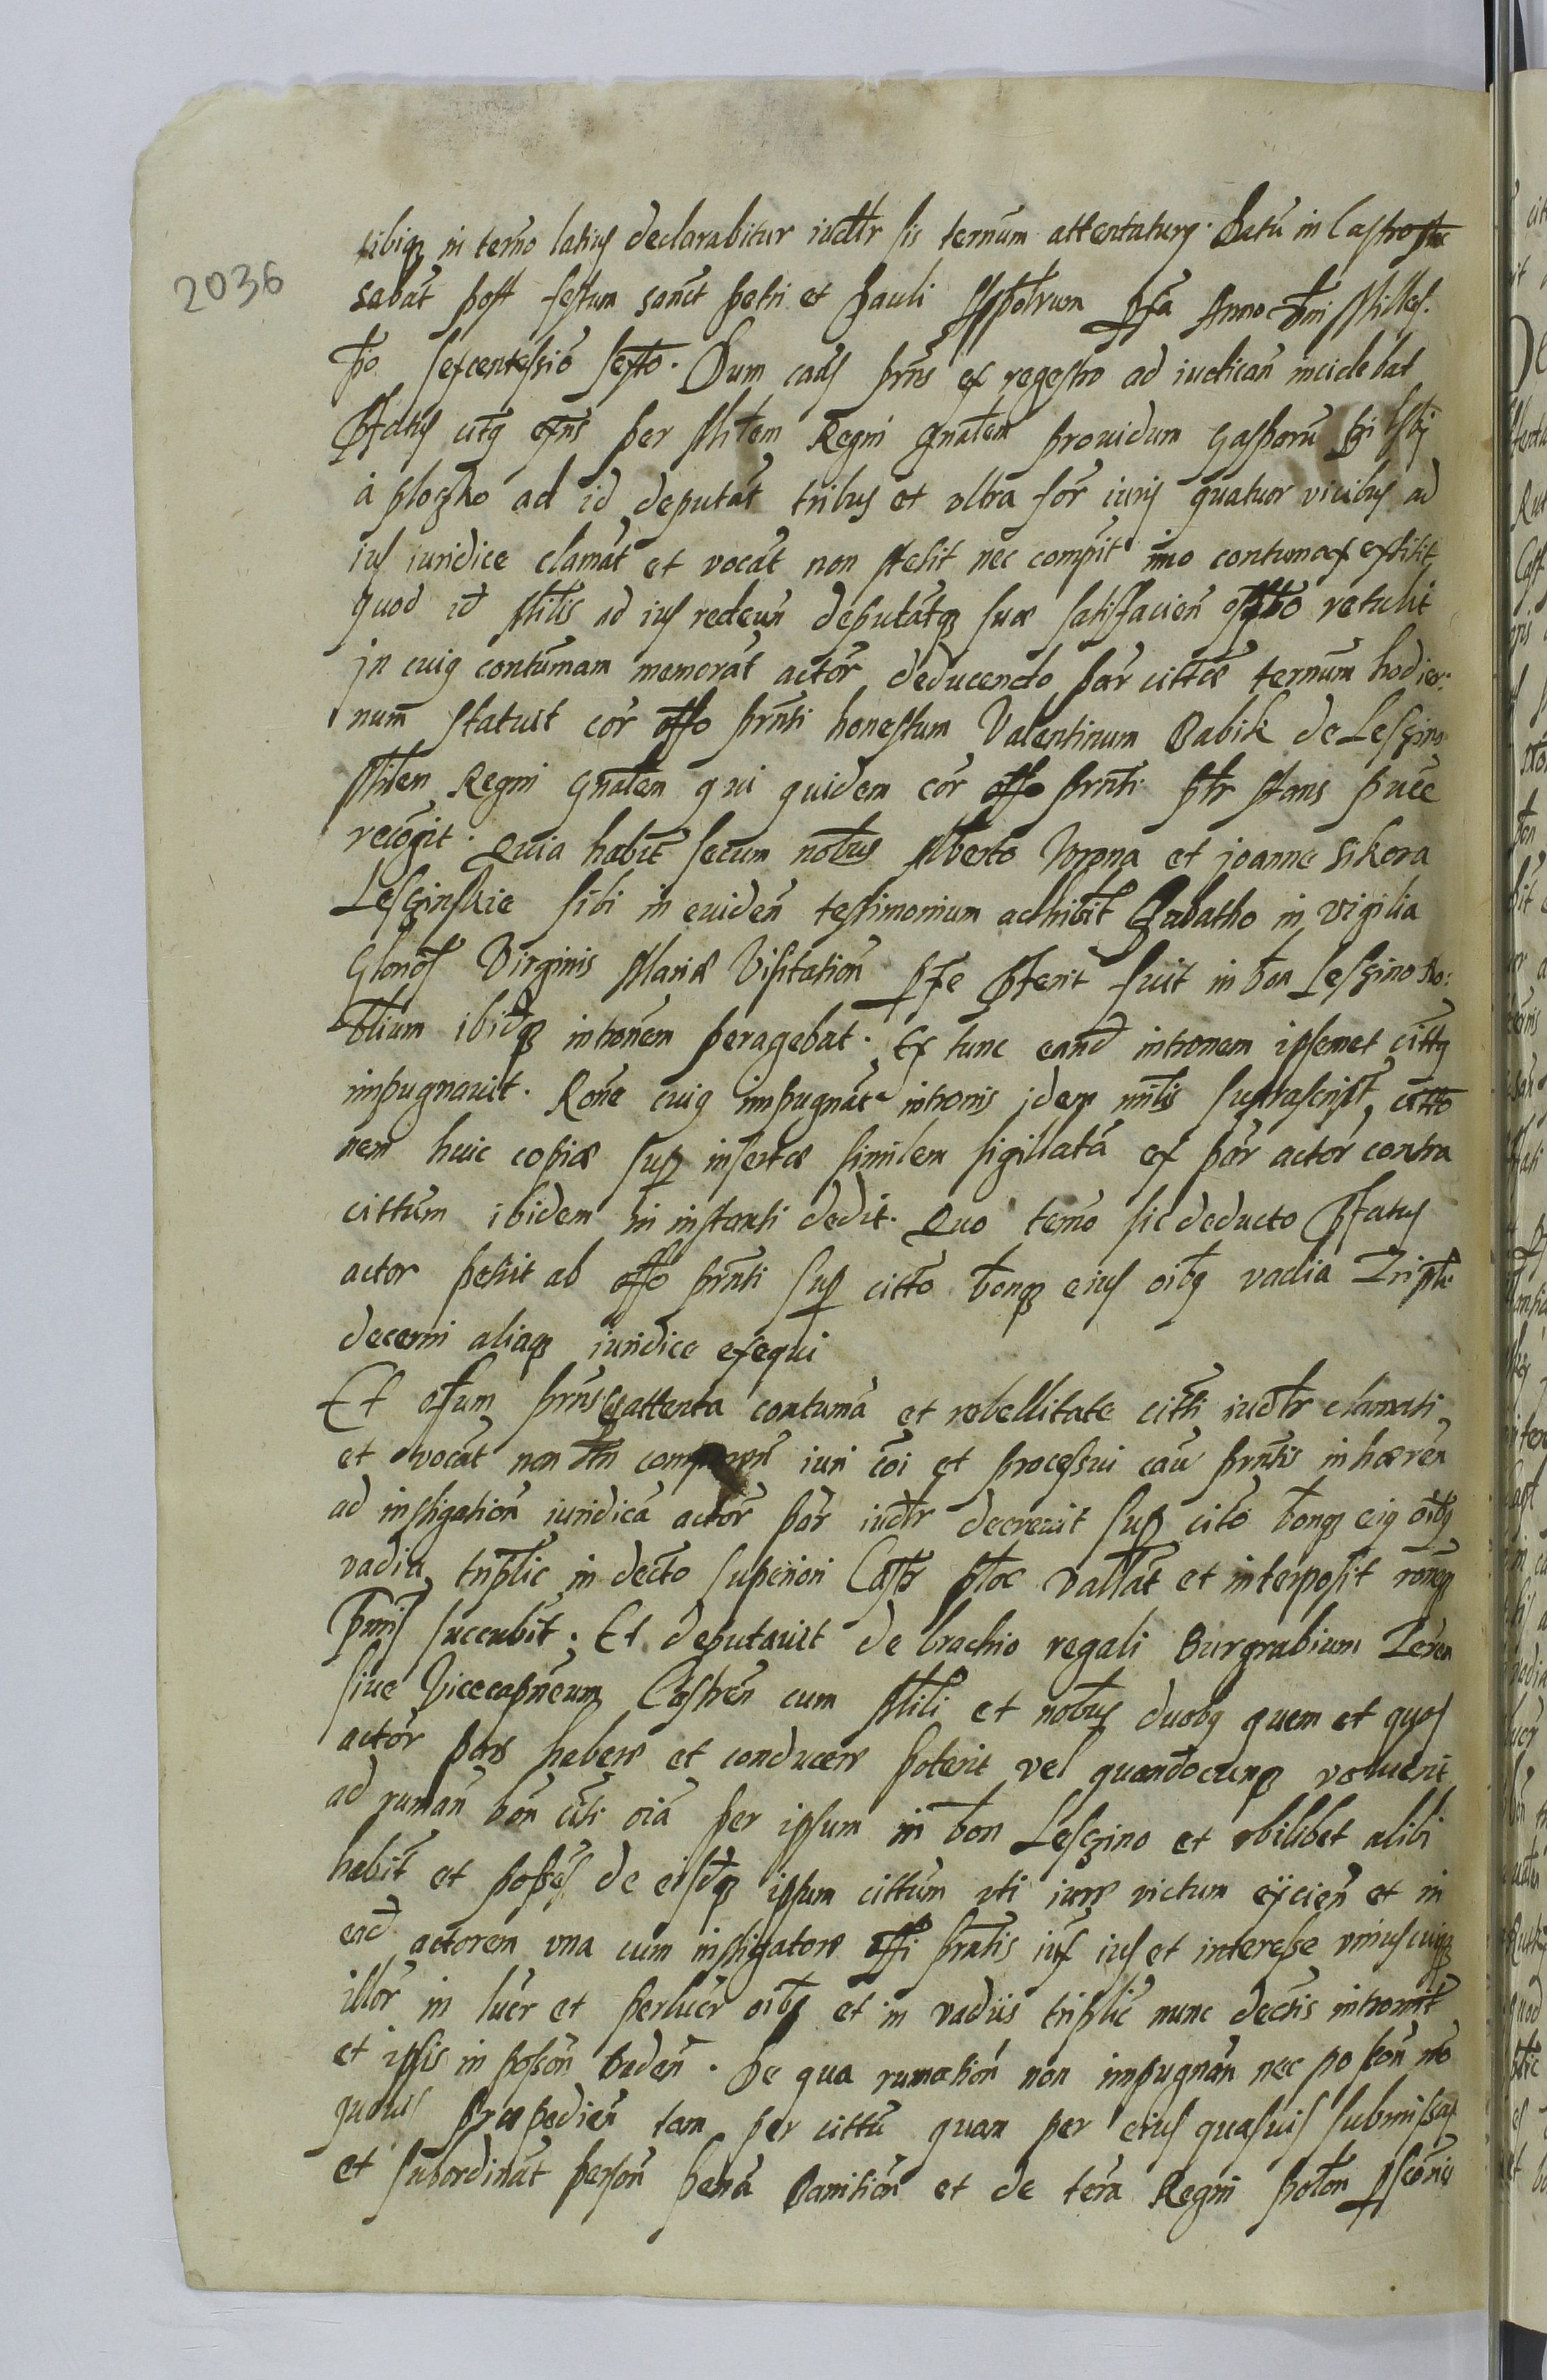 2036
tibiq in termo latius declarabitur iudltr sis ternum attentatury. Datũ in Castro
sabat post festum sanct petri et Pauli Appotrum pfa Anno Dni Milles.
sexcentessio sexto. Dum caus prns ex regestro ad iudican incidebat
Pfatus citg per Mitem Regni gnalem prouidum Gasparũ
à plozko ad id deputat tribus et vltra for iuris quatuor vicibus ad
ius iuridice clamat et vocat non stetit nec compit imo contumax extitit
quod id Mitis ad ius redeun deputatq sua satisfacien retulit
jn cuig contumam memorat actor deducendo par citta ternum hodier:
num statuit cor offo prnti honestum Valentinum Babik de Leszino
Mitem Regni gnalem qui quidem cor offo prnti ptr stans
recogit. Quia habit secum nobus Alberto Wrona et joanne Sikora
Leszinskie sibi in euiden testimonium adhibit Sabatho in vigilia
Glorios Virginis Mariæ Visitation pfe Pterit fuit in bon Leszino No:
blium ibidq intronem peragebat. Ex tunc eand intronem ipsemet cittg
impugnauit. Rone cuig impugnat intronis jdem mitis suprascript citto
nem huic copiæ sup insertæ similem sigillatá ex par actor contra
cittum ibidem in instanti dedit. Quo termo sic deducto Pfatus
actor petiit ab offo prnti sup citto bonq eius oibg vadia Triplic
decerni aliaq iuridice exequi
Et offum prns attenta contuma et rebellitate citti iudltr clamati
et vocat non tn iuri coi et processui cau prntis in hæren
ad instigation iuridica actor par iudltr decreuit sup cito bonq eig oibg
vadia triplic in decto superiori Castr ploc vallat et interposit ronq
pmis succubit. Et deputauit de brachio regali Burgrabium Terren
siue Vicecapneum Castren cum Mili et nobus duobg quem et quos
actor pars habere et conducere poterit vel quandocunq voluerit
ad ruman bon citi oia per ipsum in bon Leszino et vbilibet alibi
habit et posses de eisdq ipsum cittum vti iure victum eijcien et in
ead actorem vna cum instigatore offi prntis iux ius et interesse vniuscuiusq
illor in lucr et perlucr oibg et in vadiis triplic nunc dectis intromit
et ipsis in posson traden. De qua rumation non impugnan nec
quouis præpedien tam per cittũ quam per eius quasuis submissas
et subordinat person pena Banition et de terra Regni polon pscriois